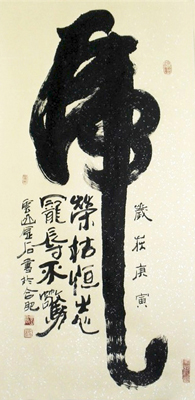 虎
歲在庚寅
榮枯恒
寵辱不驚
石書於合肥